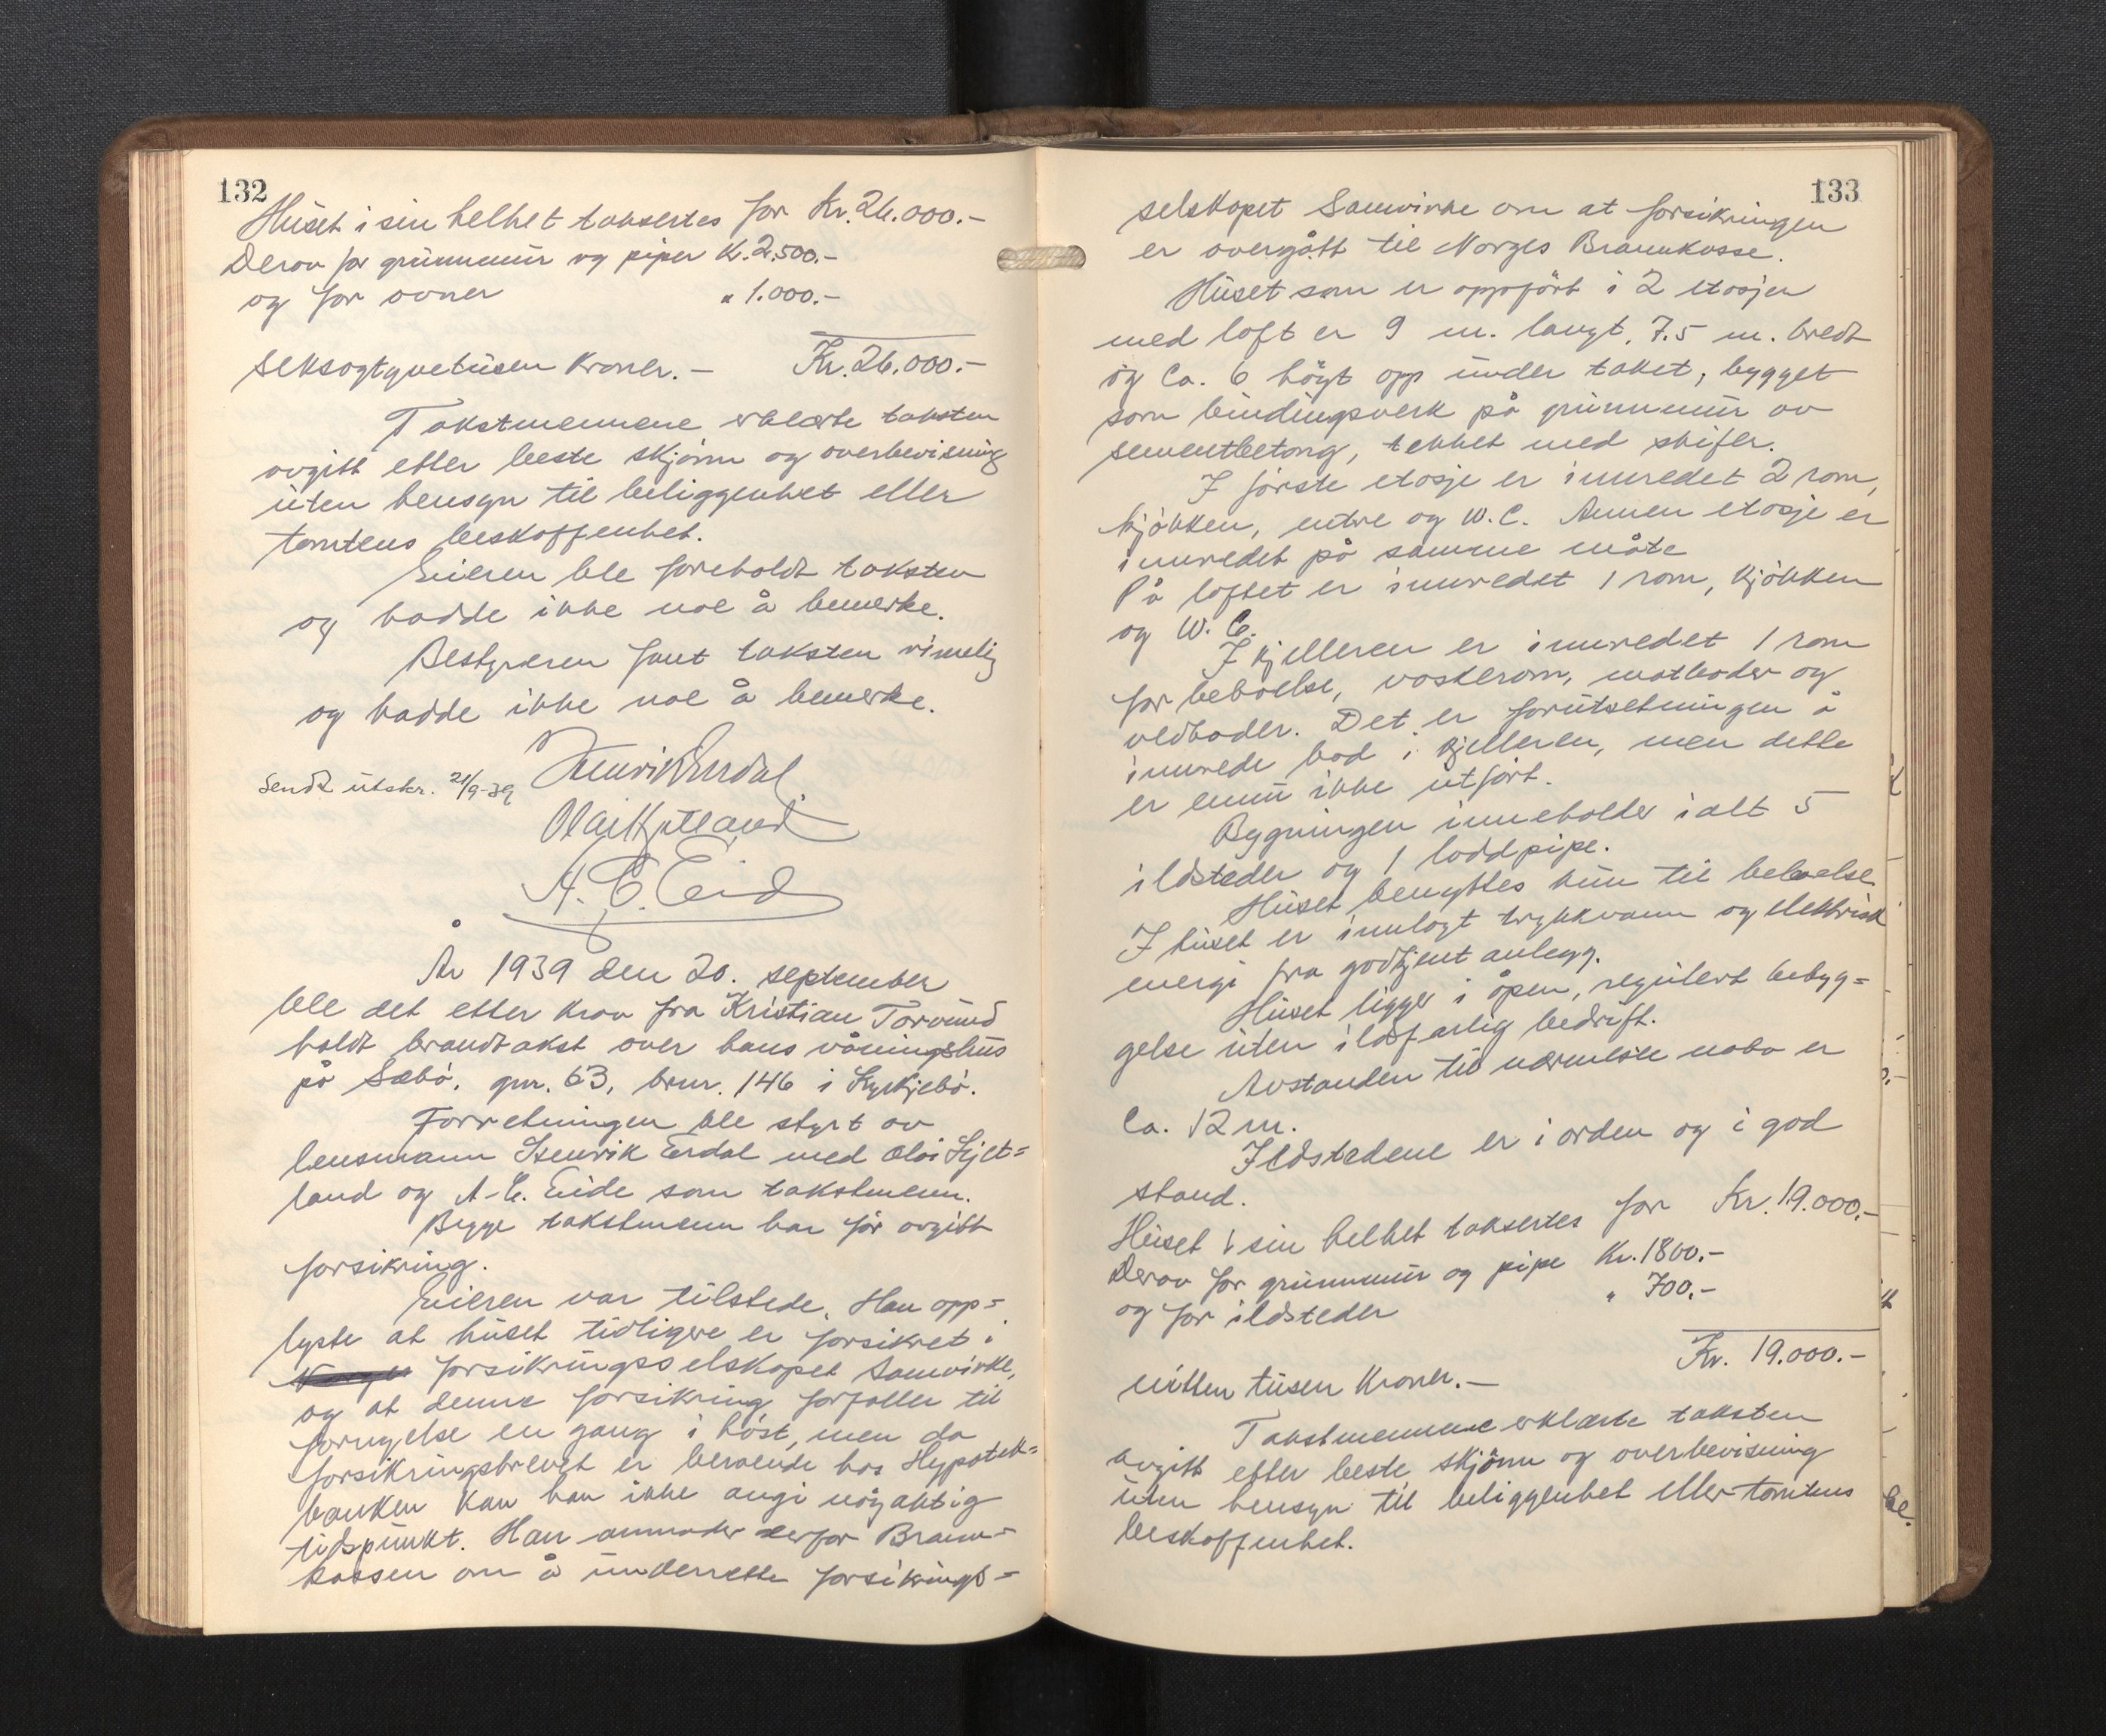 132
Huset i sin helhet takseres for Kr. 26.000.-
Derav for grunnmur og piper Kr. 2.500.-
og for ovner " 1.000.-
Kr. 26.000.-
seksogtyvetusen kroner. -
Takstmennene erklærte taksten
avgitt etter beste skjönn og overbevisning
uten hensyn til beliggenhet eller
tomtens beskaffenhet.
Eieren ble foreholdt taksten
og hadde ikke noe å bemerke.
Bestyreren fant taksten rimelig
og hadde ikke noe å bemerke.
Sendt utskr. 21/9-39 Henrik Erdal
Olai Kjetland
A. E. Eide
År 1939 den 20. september
ble det etter krav fra Kristian Torvund
holdt brandtakst over hans våningshus
på Sæbö, gnr. 63, brnr. 146 i Kyrkjebö.
Forretningen ble styrt av
lensmann Henrik Erdal med Olai Kjet=
land og A. E. Eide som takstmenn.
Begge takstmenn har för avgitt
forsikring.
Eieren var tilstede. Han opp=
lyste at huset tidligere er forsikret i
Norges forsikringsselskapet Samvirke,
og at denne forsikring forfaller til
fornyelse en gang i höst, men da
forsikringsbrevet er beroende hos Hypotek=
banken kan han ikke angi nöyaktig
tidspunkt. Han anmoder derfor Brann=
kassen om å underrette forsikrings=
133
selskapet Samvirke om at forsikringen
er overgått til Norges Brannkasse.
Huset som er oppfört i 2 etasjer
med loft er 9 m. langt, 7.5 m. bredt
og ca. 6 höyt opp under taket, bygget
som bindingsverk på grunnmur av
sementbetong, tekket med skifer.
I förste etasje er innredet 2 rom,
kjökken, entre og W.C. Annen etasje er
innredet på samme måte
På loftet er innredet 1 rom, kjökken
og W. C.
I kjelleren er innredet 1 rom
for beboelse, vaskerom, matboder og
vedboder. Det er forutsetningen å
innrede bad i kjelleren, men dette
er ennu ikke utfört.
Bygningen inneholder ialt 5
ildsteder og 1 loddpipe.
Huset benyttes kun til beboelse.
I huset er innlagt trykkvann og elektrisk
energi fra godkjent anlegg.
Huset ligger i åpen, regulert bebyg=
gelse uten ildsfarlig bedrift.
Avstanden til nærmeste nabo er
ca. 12 m.
Ildstedene er i orden og i god
stand.
Huset i sin helhet takseres for Kr. 19.000.-
Derav for grunnmur og pipe Kr. 1800.-
og for ildsteder " 700.-
Kr. 19.000.-
nitten tusen kroner. -
Takstmennene erklærte taksten
avgitt etter beste skjönn og overbevisning
uten hensyn til beliggenhet eller tomtens
beskaffenhet.